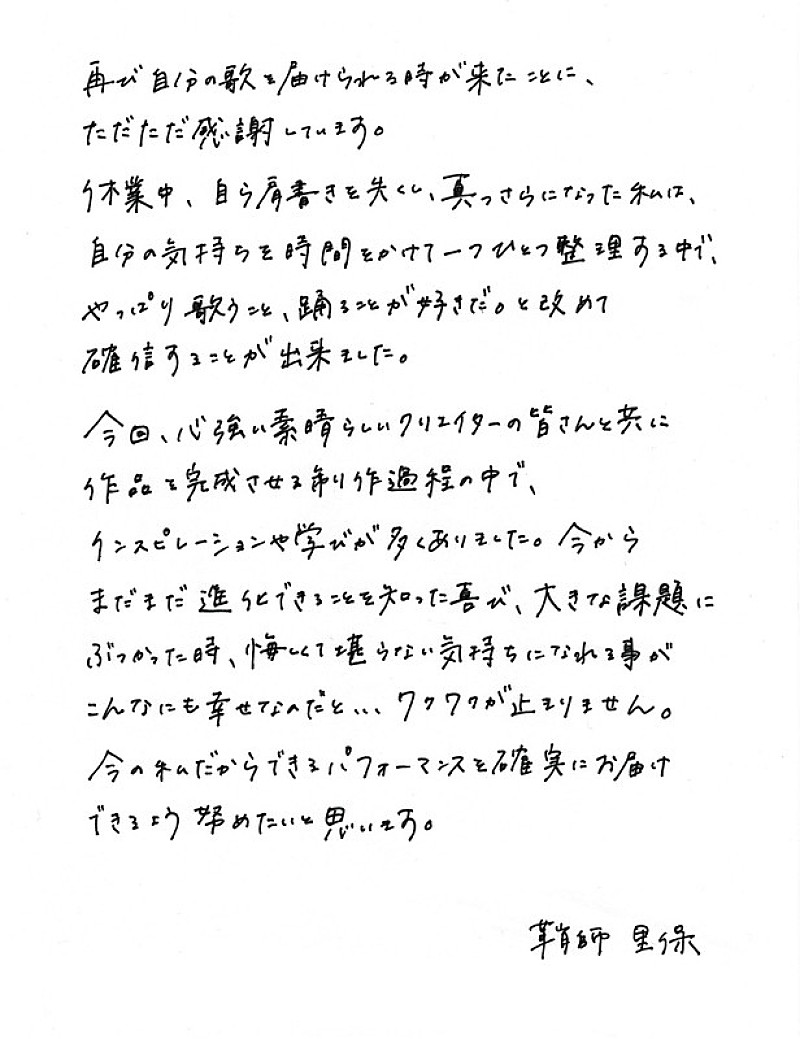 再び自分の歌を届けられる時が来たことに、
ただただ感謝しています。
休業中、自ら肩書きを失くし、真っさらになった私は、
自分の気持ちを時間をかけて一つひとつ整理する中で、
やっぱり歌うこと、踊ることが好きだ。と改めて
確信することが出来ました。
今回、心強い素晴らしいクリエイターの皆さんと共に
作品を完成させる制作過程の中で、
インスピレーションや学びが多くありました。今から
まだまだ進化できることを知った喜び、大きな課題に
ぶつかった時、悔しくて堪らない気持ちになれる事が
こんなにも幸せなのだと... ワクワクが止まりません。
今の私だからできるパフォーマンスを確実にお届け
できるよう努めたいと思います。
鞘師 里保